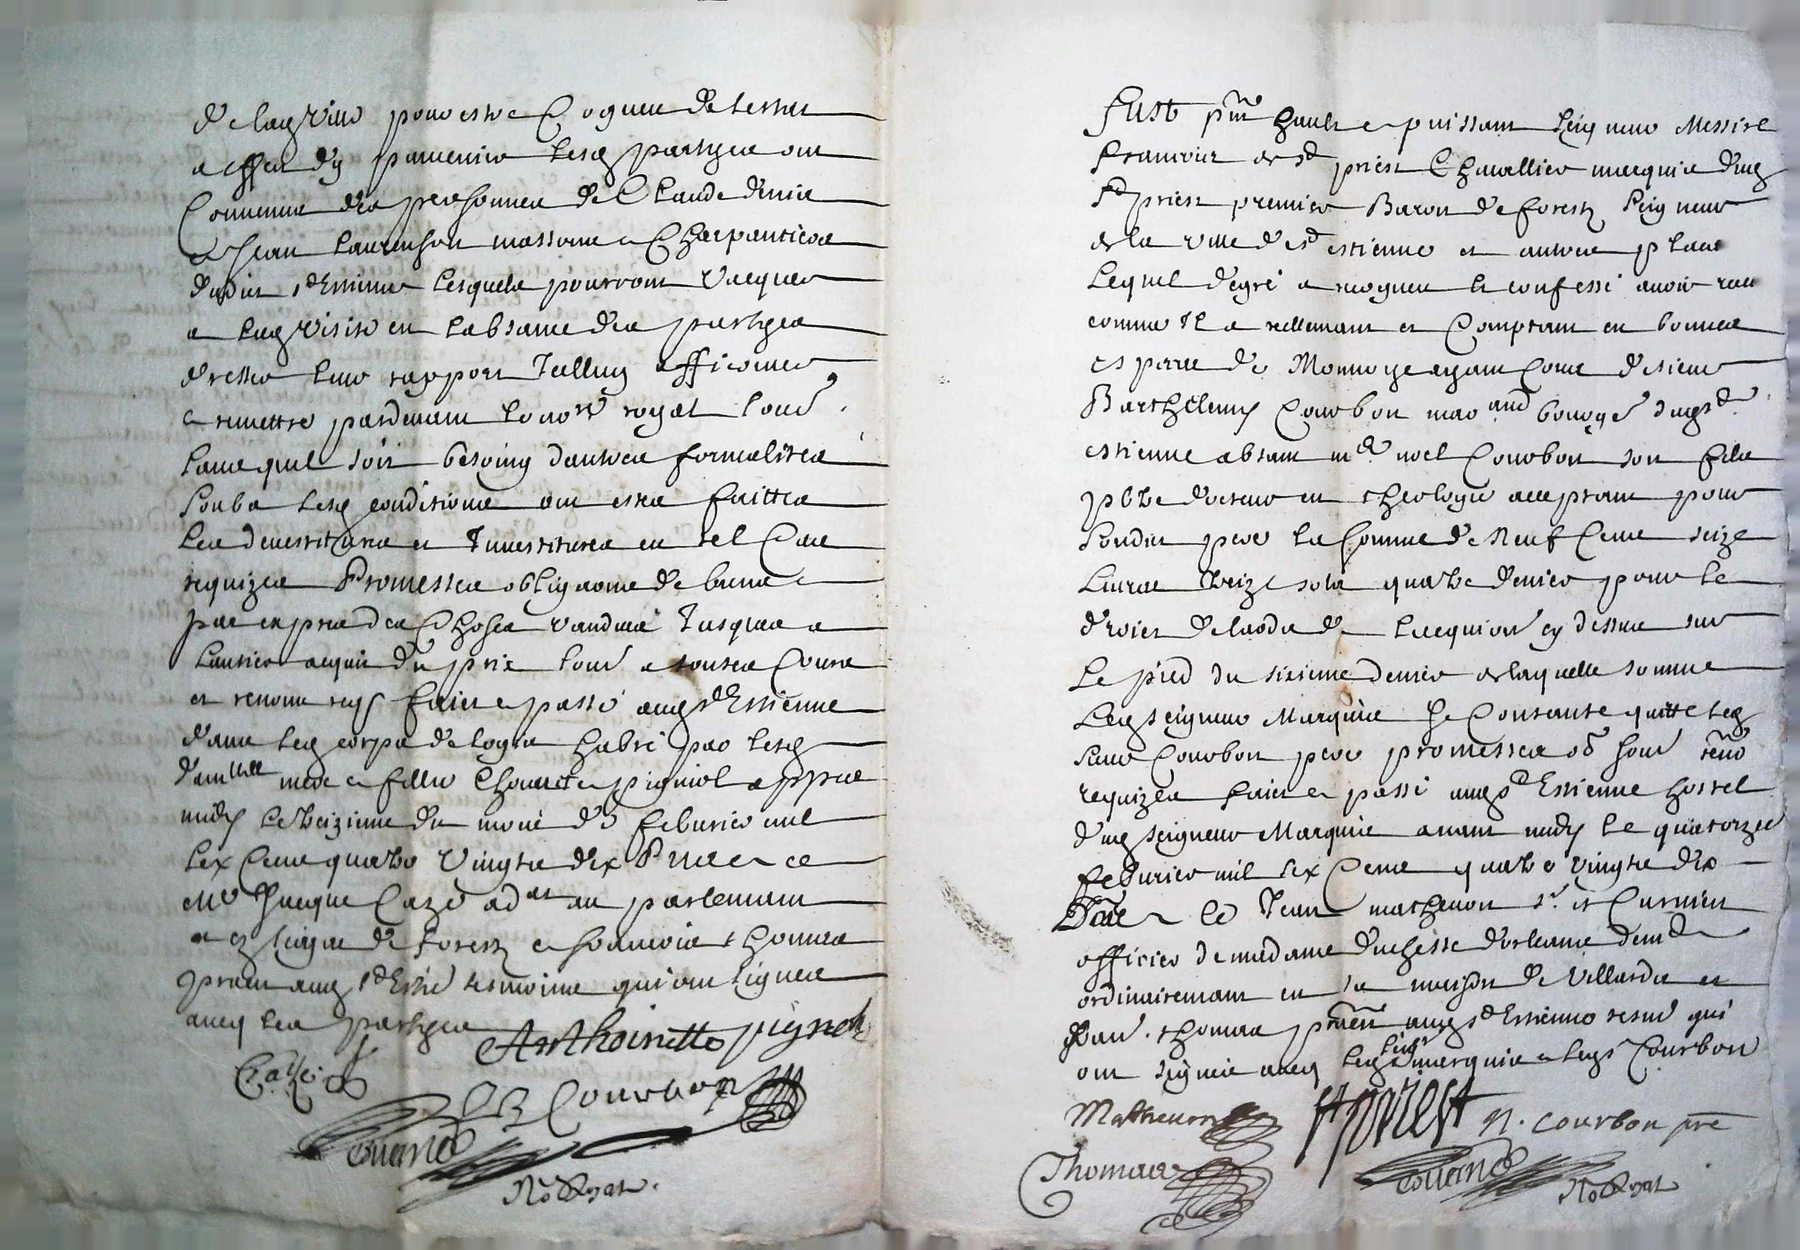 de lad ville pour estre
a effect d'y parvenir lesd parties ont
Convenu des personnes de Claude
et Jean Laurenson massons et Charpantiers
dudict St Estienne lesquels pourront vacquer
a lad visite en labsance des parties
dresser leur rapport Icelluy afficomer
et remettre pardevant le no.re royal soub.e
sans quil soit besoing dautres formalites
Soubs lesq conditions ont estes faittes
Les devestitures et Investitures en tel Cas
requizes Promesses obligaons de biens
par expres des Choses vandues Jusques a
lantier acquit du prix soub.e a toutes Cours
et renonc reqs faict et passé aud St Estienne
dans les corps de logis habité par lesd
dam.lles mere et fille Chovet et pigniol appres
midy le treizieme du mois de febvrier mil
six Cens quatre vingts dix Presens ce
Me Jacque Cazes ad.at au parlemant
et ez siege de forest et françois thomas
prat.n aud St Esti.e tesmoins qui ont signes
avec les parties
Anthoinette pignol
Cazes
B Courbon
No.e Royal.
Fust p.nt hault et puissant seigneur Messire
francois de St priest Chavallier marquis dud
St priest premier Baron de forestz seigneur
de la ville de St estienne et autres places
Lequel de gré a recogneu et confessé avoir receu
comme Il a rellemant et Comptant en bonnes
espesses de Monnoye ayant Cours de sieur
Barthelemy Courbon mar.and bourge.s dud St
estienne absant m.e noel Courbon son fils
pbtre docteur en theologie acceptant pour
sondict pere la somme de Neuf Cens seize
Livres treize sols quatre deniers pour les
droict de laods de lacquion cy dessus sur
Le pied du sizieme denier de laquelle somme
Led seigneur Marquis se Contante quitte led
sieur Courbon pere promesses ob soub ren.on
requizes faict et passé aud St Estienne hostel
dud seigneur Marquis avant midy le quatorze
febvrier mil six Cens quatre vingts dix
Jean mathevon Sr et Cur
officier de madame duchesse dorleans dem.t
ordinairemant en sa maison de Villards et
thomas pra.cien aud St Estienne tesm qui
ont signes avec led sieur marquis et led Sr Courbon
Mathevon
St priest
N. Courbon pre
Thomas
No.e Royal